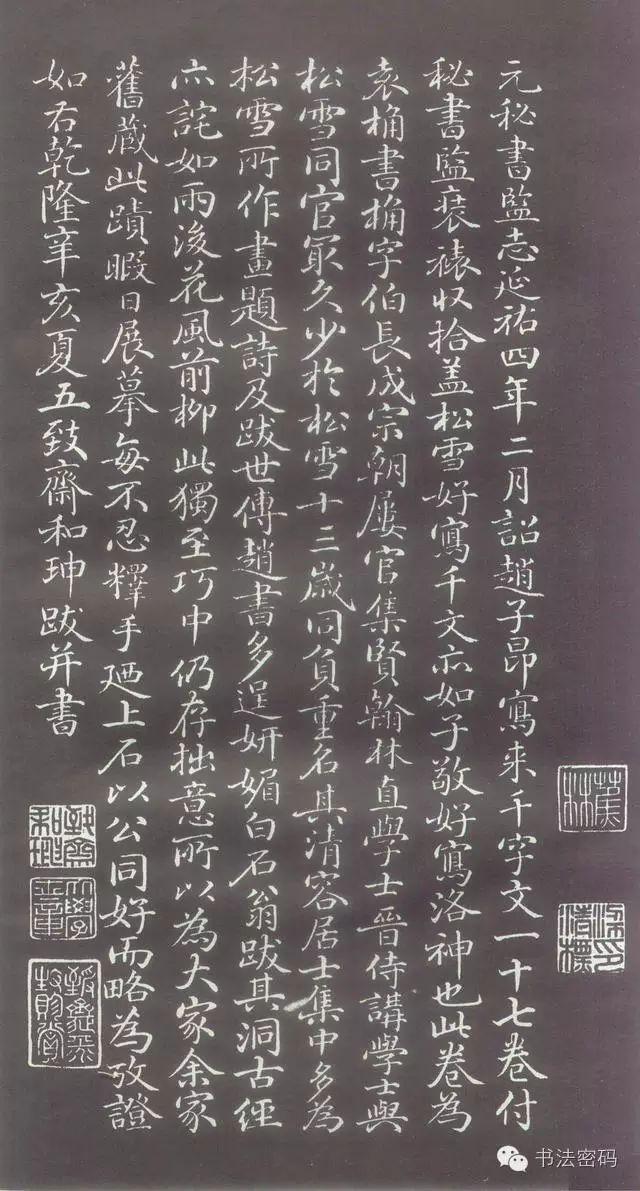 元秘書監志延祐四年二月詔趙子昂寫来千字文一十七卷付
秘書監裝裱収拾盖松雪好寫千文亦如子敬好寫洛神也此卷為
袁桷書桷字伯長成宗朝屢官集賢翰林直學士晉侍講學士與
松雪同官冣久少於松雪十三歲同負重名其清容居士集中多為
松雪所作畫題詩及跋世傳趙書多逞妍媚白石翁跋其洞古經
亦詫如雨後花風前柳此獨至巧中仍存拙意所以為大家余家
舊蔵此蹟暇日展摹每不忍釋手廼上石以公同好而略為攷證
如右乾隆辛亥夏五致齋和珅跋并書
蕉林
梁氏清標
致齋和珅
大學士章
书法密码